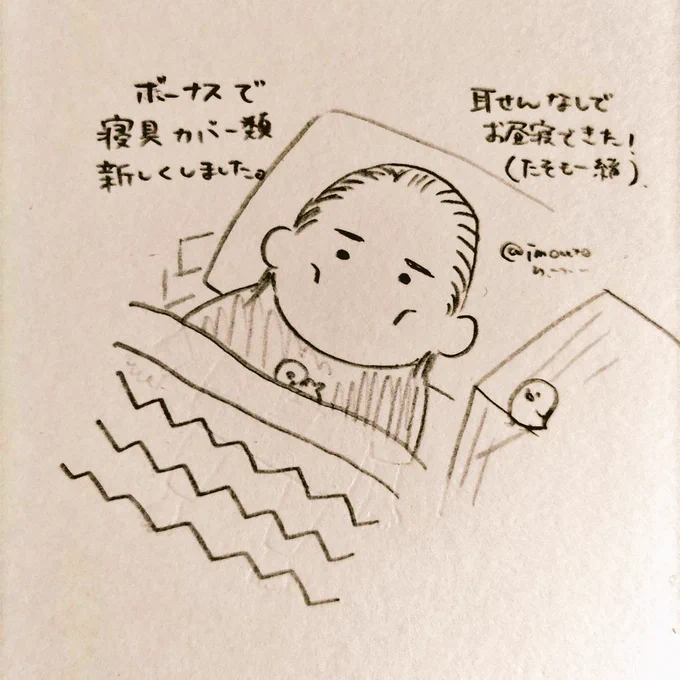 ボーナスで
寝具カバー類
新しくしました。
耳せんなしで
お昼寝できた!
(たそも一緒).